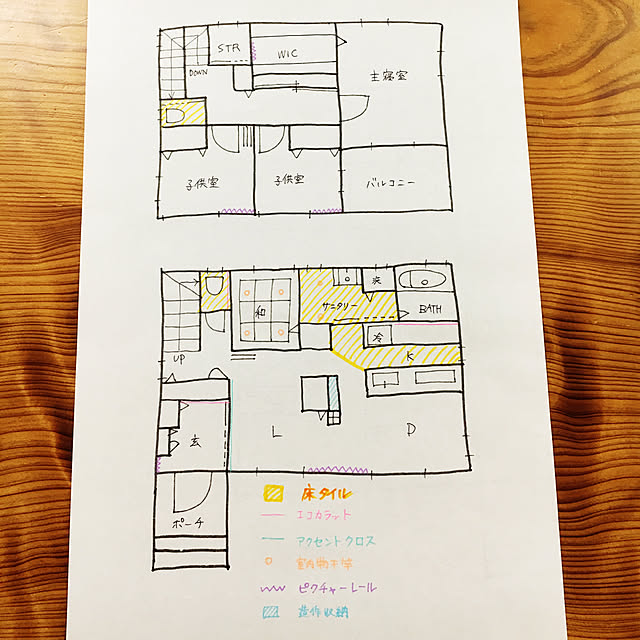 STR
WIC
DOWN
主寝室
子供室
子供室
バルコニー
和
サニタリー
洗
BATH
冷
K
UP
玄
L
D
ポーチ
床タイル
エコカラット
アクセントクロス
室内物干竿
ピクチャーレール
造作収納